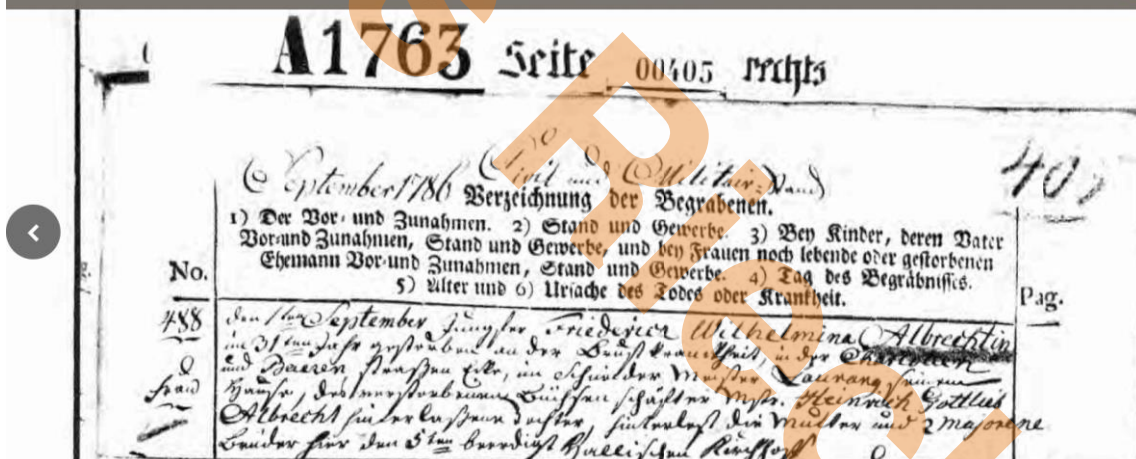 A1763 Seite 00405 rechts
407
September 1786 Civil und Militair-Stand
Verzeichnung der Begrabenen.
1) Der Vor- und Zunahmen. 2) Stand und Gewerbe. 3) Bey Kinder, deren Vater
Vor-und Zunahmen, Stand und Gewerbe, und bey Frauen noch lebende oder gestorbenen
Ehemann Vor-und Zunahmen, Stand und Gewerbe. 4) Tag des Begräbnisses.
No. 5) Alter und 6) Ursache des Todes oder Krankheit. Pag.
488 den 1ten September Jungfer Friederica Wilhelmina Albrechtin
im 31ten Jahr gestorben an der Brust Krankheit in der
und Baeren straßen Ecke, im Schneider Meister seinem
Hause, des verstorbenen Büchsen schäfter Mstr. Heinrich Gottlieb
Albrecht hinterlaßene Tochter, hinterlest die Mutter und 2 majorene
Brüder hier den 5ten beerdigt Hallischen Kirchhoff